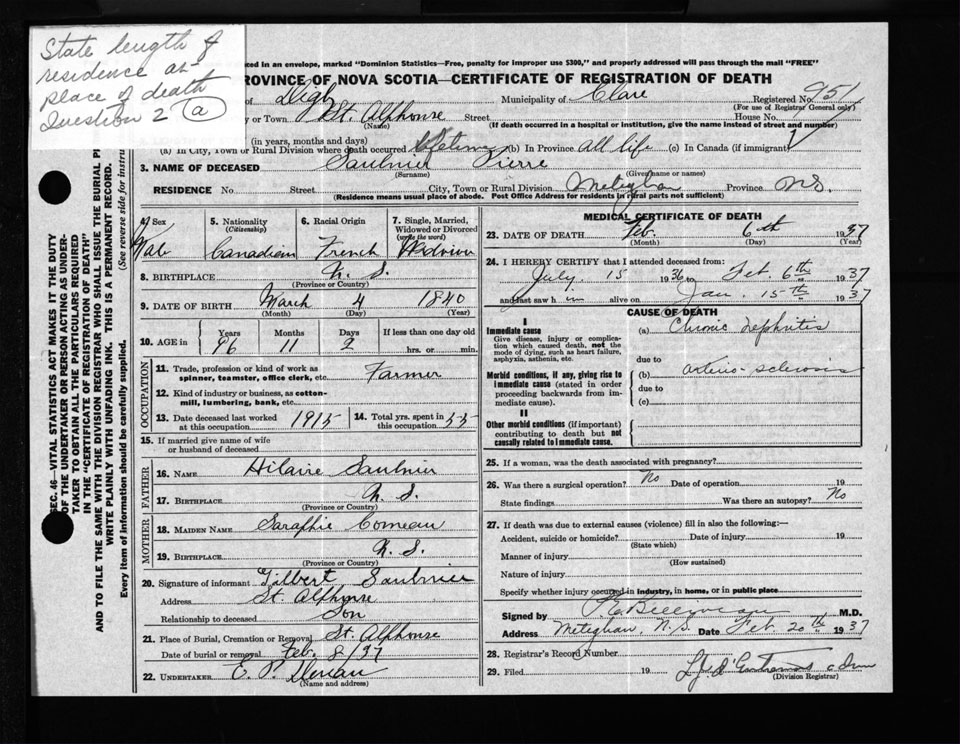 State length of
residence at
place of death
Question 2 (a)
ked in an envelope, marked "Dominion Statistics—Free, penalty for improper use $300," and properly addressed will pass through the mail "FREE"
ROVINCE OF NOVA SCOTIA—CERTIFICATE OF REGISTRATION OF DEATH
of Digby Municipality of Clare Registered No. 951
(For use of Registrar General only)
y or Town St. Alphonse Street House No.
(Name) (If death occurred in a hospital or institution, give the name instead of street and number)
(in years, months and days)
(a) In City, Town or Rural Division where death occurred lifetime (b) In Province All life (c) In Canada (if immigrant)
3. NAME OF DECEASED Saulnier Pierre
(Surname) (Given name or names)
RESIDENCE No Street City, Town or Rural Division Meteghan Province N.S.
(Residence means usual place of abode. Post Office Address for residents in rural parts not sufficient)
4. Sex 5. Nationality 6. Racial Origin 7. Single, Married,
(Citizenship) Widowed or Divorced
(write the word)
Male Canadian French Widower
8. BIRTHPLACE N. S.
(Province or Country)
9. DATE OF BIRTH March 4 1840
(Month) (Day) (Year)
10. AGE in Years Months Days If less than one day old
96 11 2 hrs. or min.
OCCUPATION
11. Trade, profession or kind of work as
spinner, teamster, office clerk, etc. Farmer
12. Kind of industry or business, as cotton-
mill, lumbering, bank, etc.
13. Date deceased last worked
at this occupation 1915 14. Total yrs. spent in
this occupation 55
15. If married give name of wife
or husband of deceased
FATHER
16. NAME Hilaire Saulnier
17. BIRTHPLACE N. S.
(Province or Country)
MOTHER
18. MAIDEN NAME Saraphie Comeau
19. BIRTHPLACE N. S.
(Province or Country)
20. Signature of informant Gilbert Saulnier
Address St. Alphonse
Relationship to deceased Son
21. Place of Burial, Cremation or Removal St. Alphonse
Date of burial or removal Feb. 8/37
22. UNDERTAKER E. P.
(Name and address)
MEDICAL CERTIFICATE OF DEATH
23. DATE OF DEATH Feb. 6th 1937
(Month) (Day) (Year)
24. I HEREBY CERTIFY that I attended deceased from:
July. 15 1936 Feb. 6th 1937
and last saw h im alive on Jan. 15th 1937
CAUSE OF DEATH
I
Immediate cause (a) Chronic nephritis
Give disease, injury or complica-
tion which caused death, not the
mode of dying, such as heart failure,
asphyxia, asthenia, etc.
due to
Morbid conditions, if any, giving rise to (b) Arterio-sclerosis
immediate cause (stated in order
proceeding backwards from im-
mediate cause).
due to
(c)
II
Other morbid conditions (if important)
contributing to death but not
causally related to immediate cause.
25. If a woman, was the death associated with pregnancy?
26. Was there a surgical operation? No Date of operation 19
State findings Was there an autopsy? No
27. If death was due to external causes (violence) fill in also the following:
Accident, suicide or homicide? Date of injury 19
(State which)
Manner of injury
(How sustained)
Nature of injury
Specify whether injury occurred in industry, in home, or in public place
Signed by M.D.
Address Meteghan, N.S. Date Feb 20th 1937
28. Registrar's Record Number
29. Filed 19
(Division Registrar)
SEC. 46—VITAL STATISTICS ACT MAKES IT THE DUTY
OF THE UNDERTAKER OR PERSON ACTING AS UNDER-
TAKER TO OBTAIN ALL THE PARTICULARS REQUIRED
IN THE "CERTIFICATE OF REGISTRATION OF DEATH"
AND TO FILE THE SAME WITH THE DIVISION REGISTRAR WHO SHALL ISSUE THE BURIAL P
WRITE PLAINLY WITH UNFADING INK. THIS IS A PERMANENT RECORD.
Every item of information should be carefully supplied. (See reverse side for instru